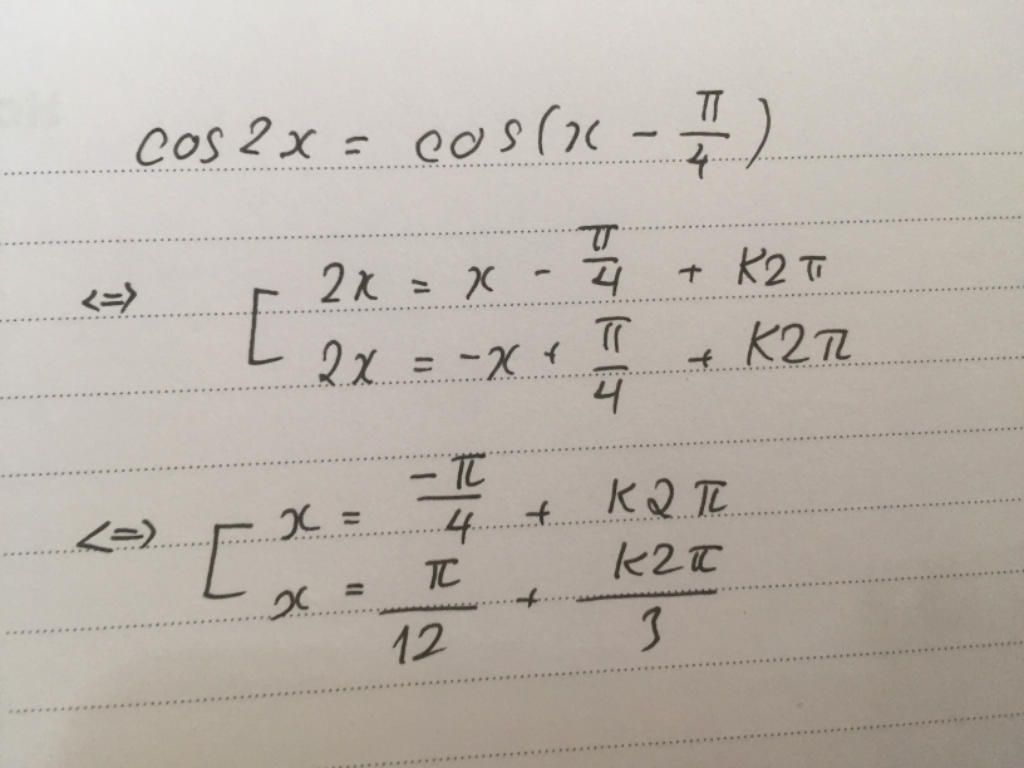 cos2x = cos(x - π/4)
<=> [ 2x = x - π/4 + K2π
2x = -x + π/4 + K2π
<=> [ x = -π/4 + K2π
x = π/12 + K2π/3